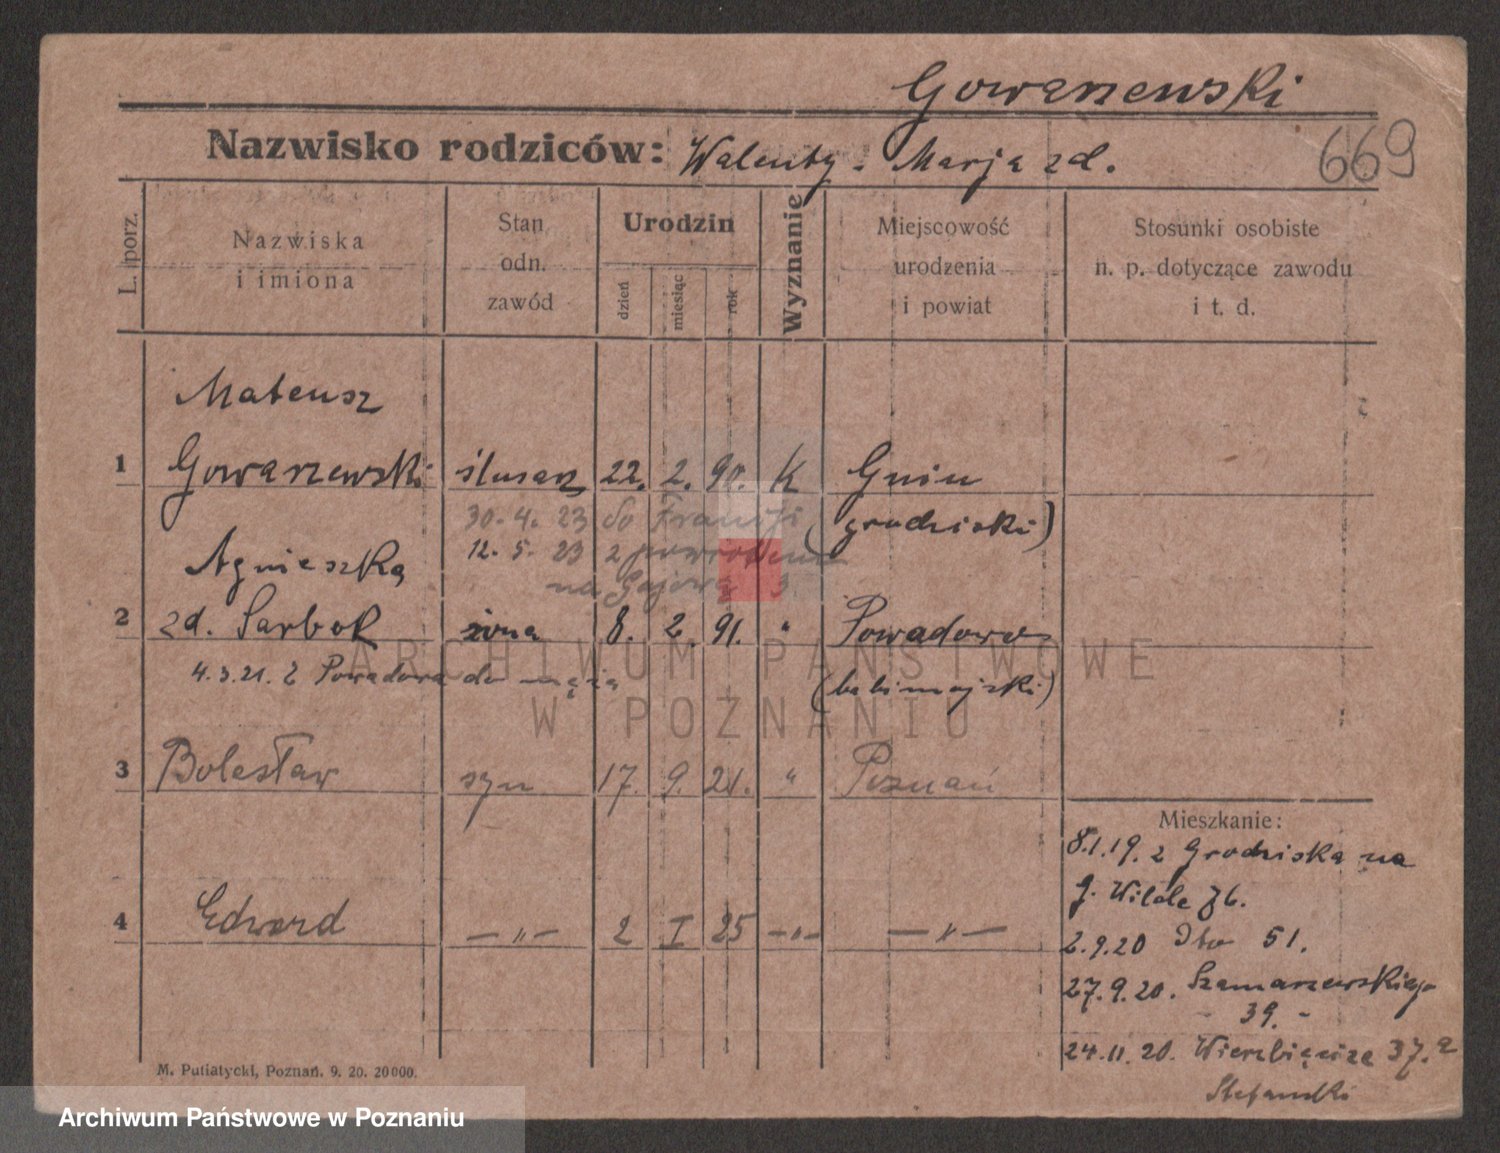 Gowarzewski
Nazwisko rodziców: Walenty - Marja zd.
669
L. porz.
Nazwiska
i imiona
Stan
odn.
zawód
Urodzin
dzień
miesiąc
rok
Wyznanie
Miejscowość
urodzenia
i powiat
Stosunki osobiste
n. p. dotyczące zawodu
i t. d.
Mateusz
1 Gowarzewski ślusarz 22. 2. 90. K Gnin
(grodziski)
30. 4. 23 do Francji
12. 5. 23 z powrotem
na Gajową 3
Agnieszka
2 zd. Sarbok żona 8. 2. 91. " Powadowo
4.3.21. z Powadowa do męża (babimojski)
3 Bolesław syn 17. 9. 21. " Poznań
4 Edward — " — 2 I 25 — " — — " —
Mieszkanie:
8.1.19. z Grodziska na
g. Wilde 76.
2.9.20 Dto 51.
27.9.20. Szamarzewskiego
- 39. -
24.11.20. Wierzbięcice 37.a
M. Putiatycki, Poznań. 9. 20. 20000.
ARCHIWUM PAŃSTWOWE
W POZNANIU
Archiwum Państwowe w Poznaniu